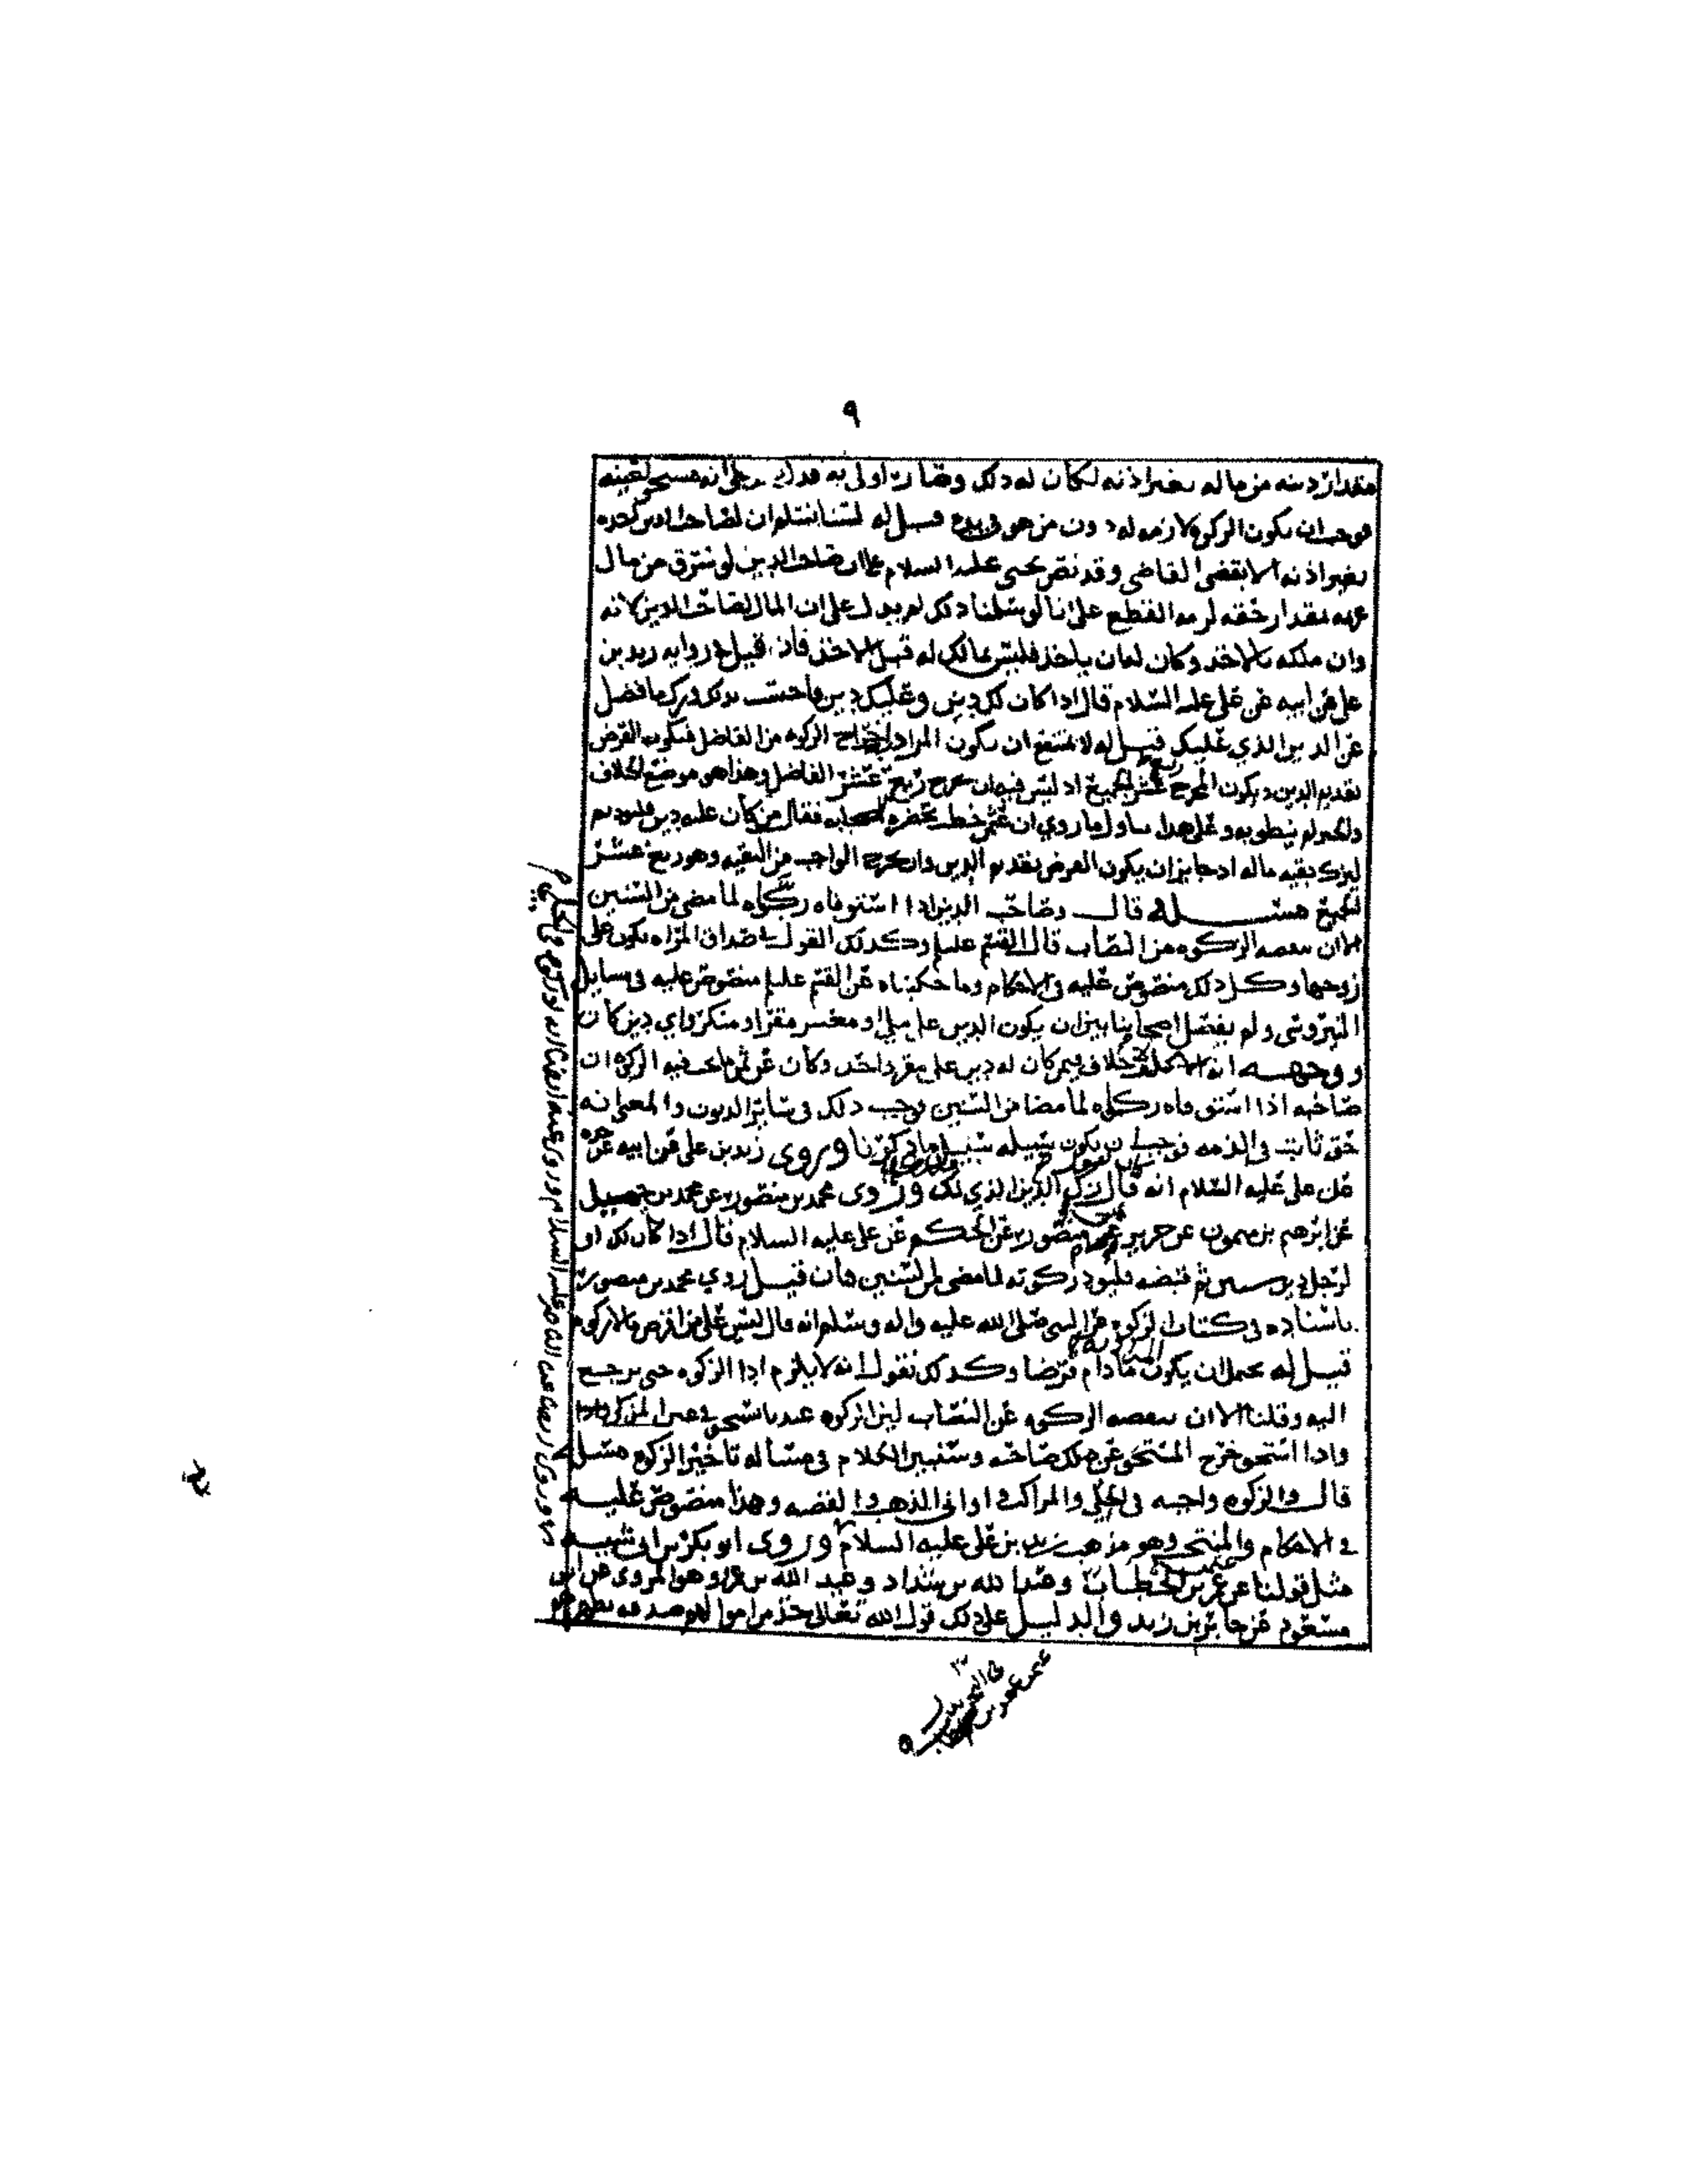 ٩
مقدار دينه من ماله بغير اذنه لكان له ذلك وصار اولى به فدل على انه مستحق لعينه
فوجب ان يكون الزكوه لازمه له دون من هو في يده قيل له لسنا نسلم ان لصاحب الدين اخذه
بغير اذنه الا بقضى القاضي وقد نص يحيى عليه السلام على ان صاحب الدين لو سرق من مال
غريمه مقدار حقه لزمه القطع على انا لو سلمنا ذلك لم يدل على ان المال لصاحب الدين لانه
وان ملكه بالاخذ وكان له ان ياخذ فليس بمالك له قبل الاخذ فان قيل في روايه زيد بن
علي عن ابيه عن علي عليه السلام قال اذا كان لك دين وعليك دين فاحتسب بذلك وزك ما فضل
عن الدين الذي عليك قيل له لا يمتنع ان يكون المراد اخراج الزكوه من الفاضل فيكون الغرض
تقديم الدين ويكون المخرج ربع عشر الجميع اذ ليس فيه ان يخرج ربع عشر الفاضل وهذا هو موضع الخلاف
ولكنه لم ينطق به وعلى هذا يتاول ما روي ان عثمن خطب بحضره الصحابه فقال من كان عليه دين فليوده ثم
ليزك بقيه ماله اذ جايز ان يكون الغرض تقديم الدين وان يخرج الواجب من البقيه وهو ربع عشر
الجميع مسئله قال وصاحب الدين اذا استوفاه زكاه لما مضى من السنين
الا ان ينقصه الزكوه من النصاب قال القسم عليلم وكذلك القول في صداق المراه يكون على
زوجها وكل ذلك منصوص عليه في الاحكام وما حكيناه عن القسم عليلم منصوص عليه في مسايل
النيروسي ولم يفصل اصحابنا بين ان يكون الدين على ملي او معسر مقر او منكر واي دين كان
ووجهه انه لا خلاف فيمن كان له دين على مقر واجد وكان عن ثمن ما يجب فيه الزكوه ان
صاحبه اذا استوفاه زكاه لما مضا من السنين فوجب ذلك في ساير الديون والمعنى انه
حق ثابت في الذمه فوجب ان يكون سبيله سبيل ما ذكرنا وروى زيد بن علي عن ابيه عن جده
عن علي عليه السلام انه قال زك الدين الذي لك وروى محمد بن منصور عن محمد بن جميل
عن ابرهيم بن ميمون عن جرير عن منصور عن الحكم عن علي عليه السلام قال اذا كان لك او
لرجل دين سنين ثم قبضه فليود زكوته لما مضى من السنين فان قيل روي محمد بن منصور
باسناده في كتاب الزكوه عن النبي صلى الله عليه واله وسلم انه قال ليس على من اقرض مالا زكوه
قيل له يحمل ان يكون المراد به ما دام قرضا وكذلك نقول انه لا يلزم ادا الزكوه حتى يرجع
اليه وقلنا الا ان ينقصه الزكوه عن النصاب لان الزكوه عندنا تستحق في عين المزكى
واذا استحق خرج المستحق عن ملك صاحبه وسنبين الكلام في مسأله تاخير الزكوه مسئله
قال والزكوه واجبه في الحلي والمراكب واواني الذهب والفضه وهذا منصوص عليه
في الاحكام والمنتخب وهو مذهب زيد بن علي عليه السلام وروى ابو بكر بن ابي شيبه
مثل قولنا عن عمر بن الخطاب وعبد الله بن شداد وعبد الله بن عمرو وهو المروي عن ابن
مسعود عن جابر بن زيد والدليل على ذلك قول الله تعالى خذ من اموالهم صدقه تطهرهم